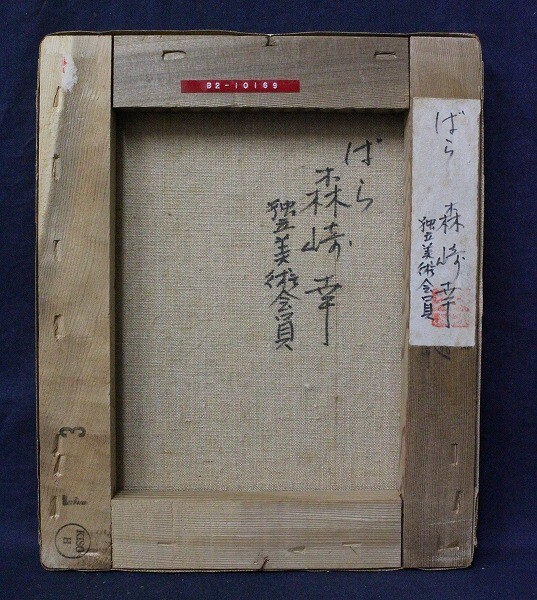 B2-10169
ばら
森崎幸
独立美術会員
ばら
森崎幸
独立美術会員
F3